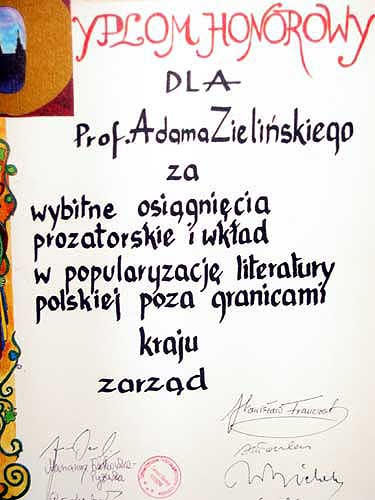 DYPLOM HONOROWY
DLA
Prof. Adama Zielińskiego
za
wybitne osiągnięcia
prozatorskie i wkład
w popularyzację literatury
polskiej poza granicami
kraju
zarząd